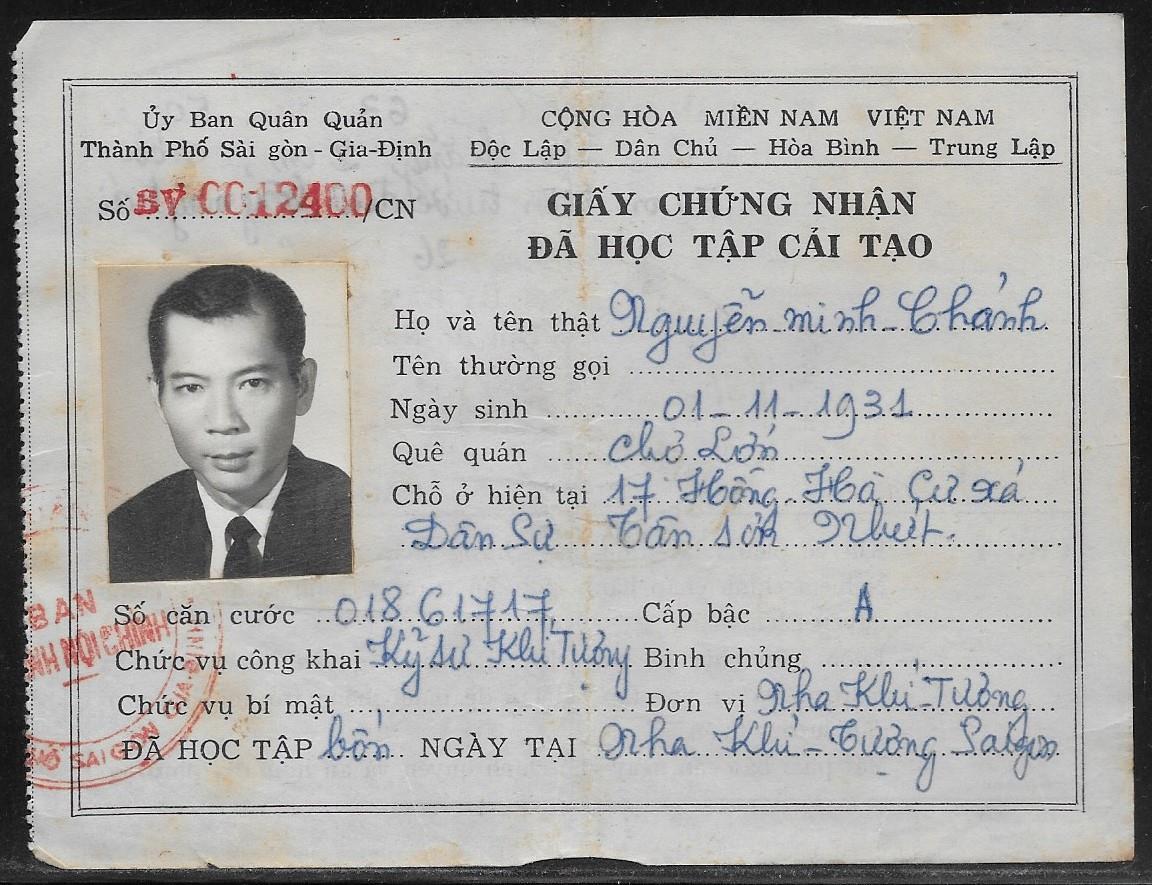 Ủy Ban Quân Quản
Thành Phố Sài gòn - Gia-Định
CỘNG HÒA MIỀN NAM VIỆT NAM
Độc Lập — Dân Chủ — Hòa Bình — Trung Lập
Số SV 0012400/CN
GIẤY CHỨNG NHẬN
ĐÃ HỌC TẬP CẢI TẠO
Họ và tên thật Nguyễn minh Chánh
Tên thường gọi
Ngày sinh 01-11-1931
Quê quán Chợ Lớn
Chỗ ở hiện tại 17 Hồng Hà Cư xá
Dân Sự Tân Sơn Nhứt.
Số căn cước 01861717 Cấp bậc A
Chức vụ công khai Kỹ sư Khí Tượng Binh chủng
Chức vụ bí mật Đơn vị Nha Khí-Tượng
ĐÃ HỌC TẬP bốn NGÀY TẠI Nha Khí-Tượng Saigon
BAN
NỘI CHÍNH
PHỐ SAIGON GIA-ĐỊNH